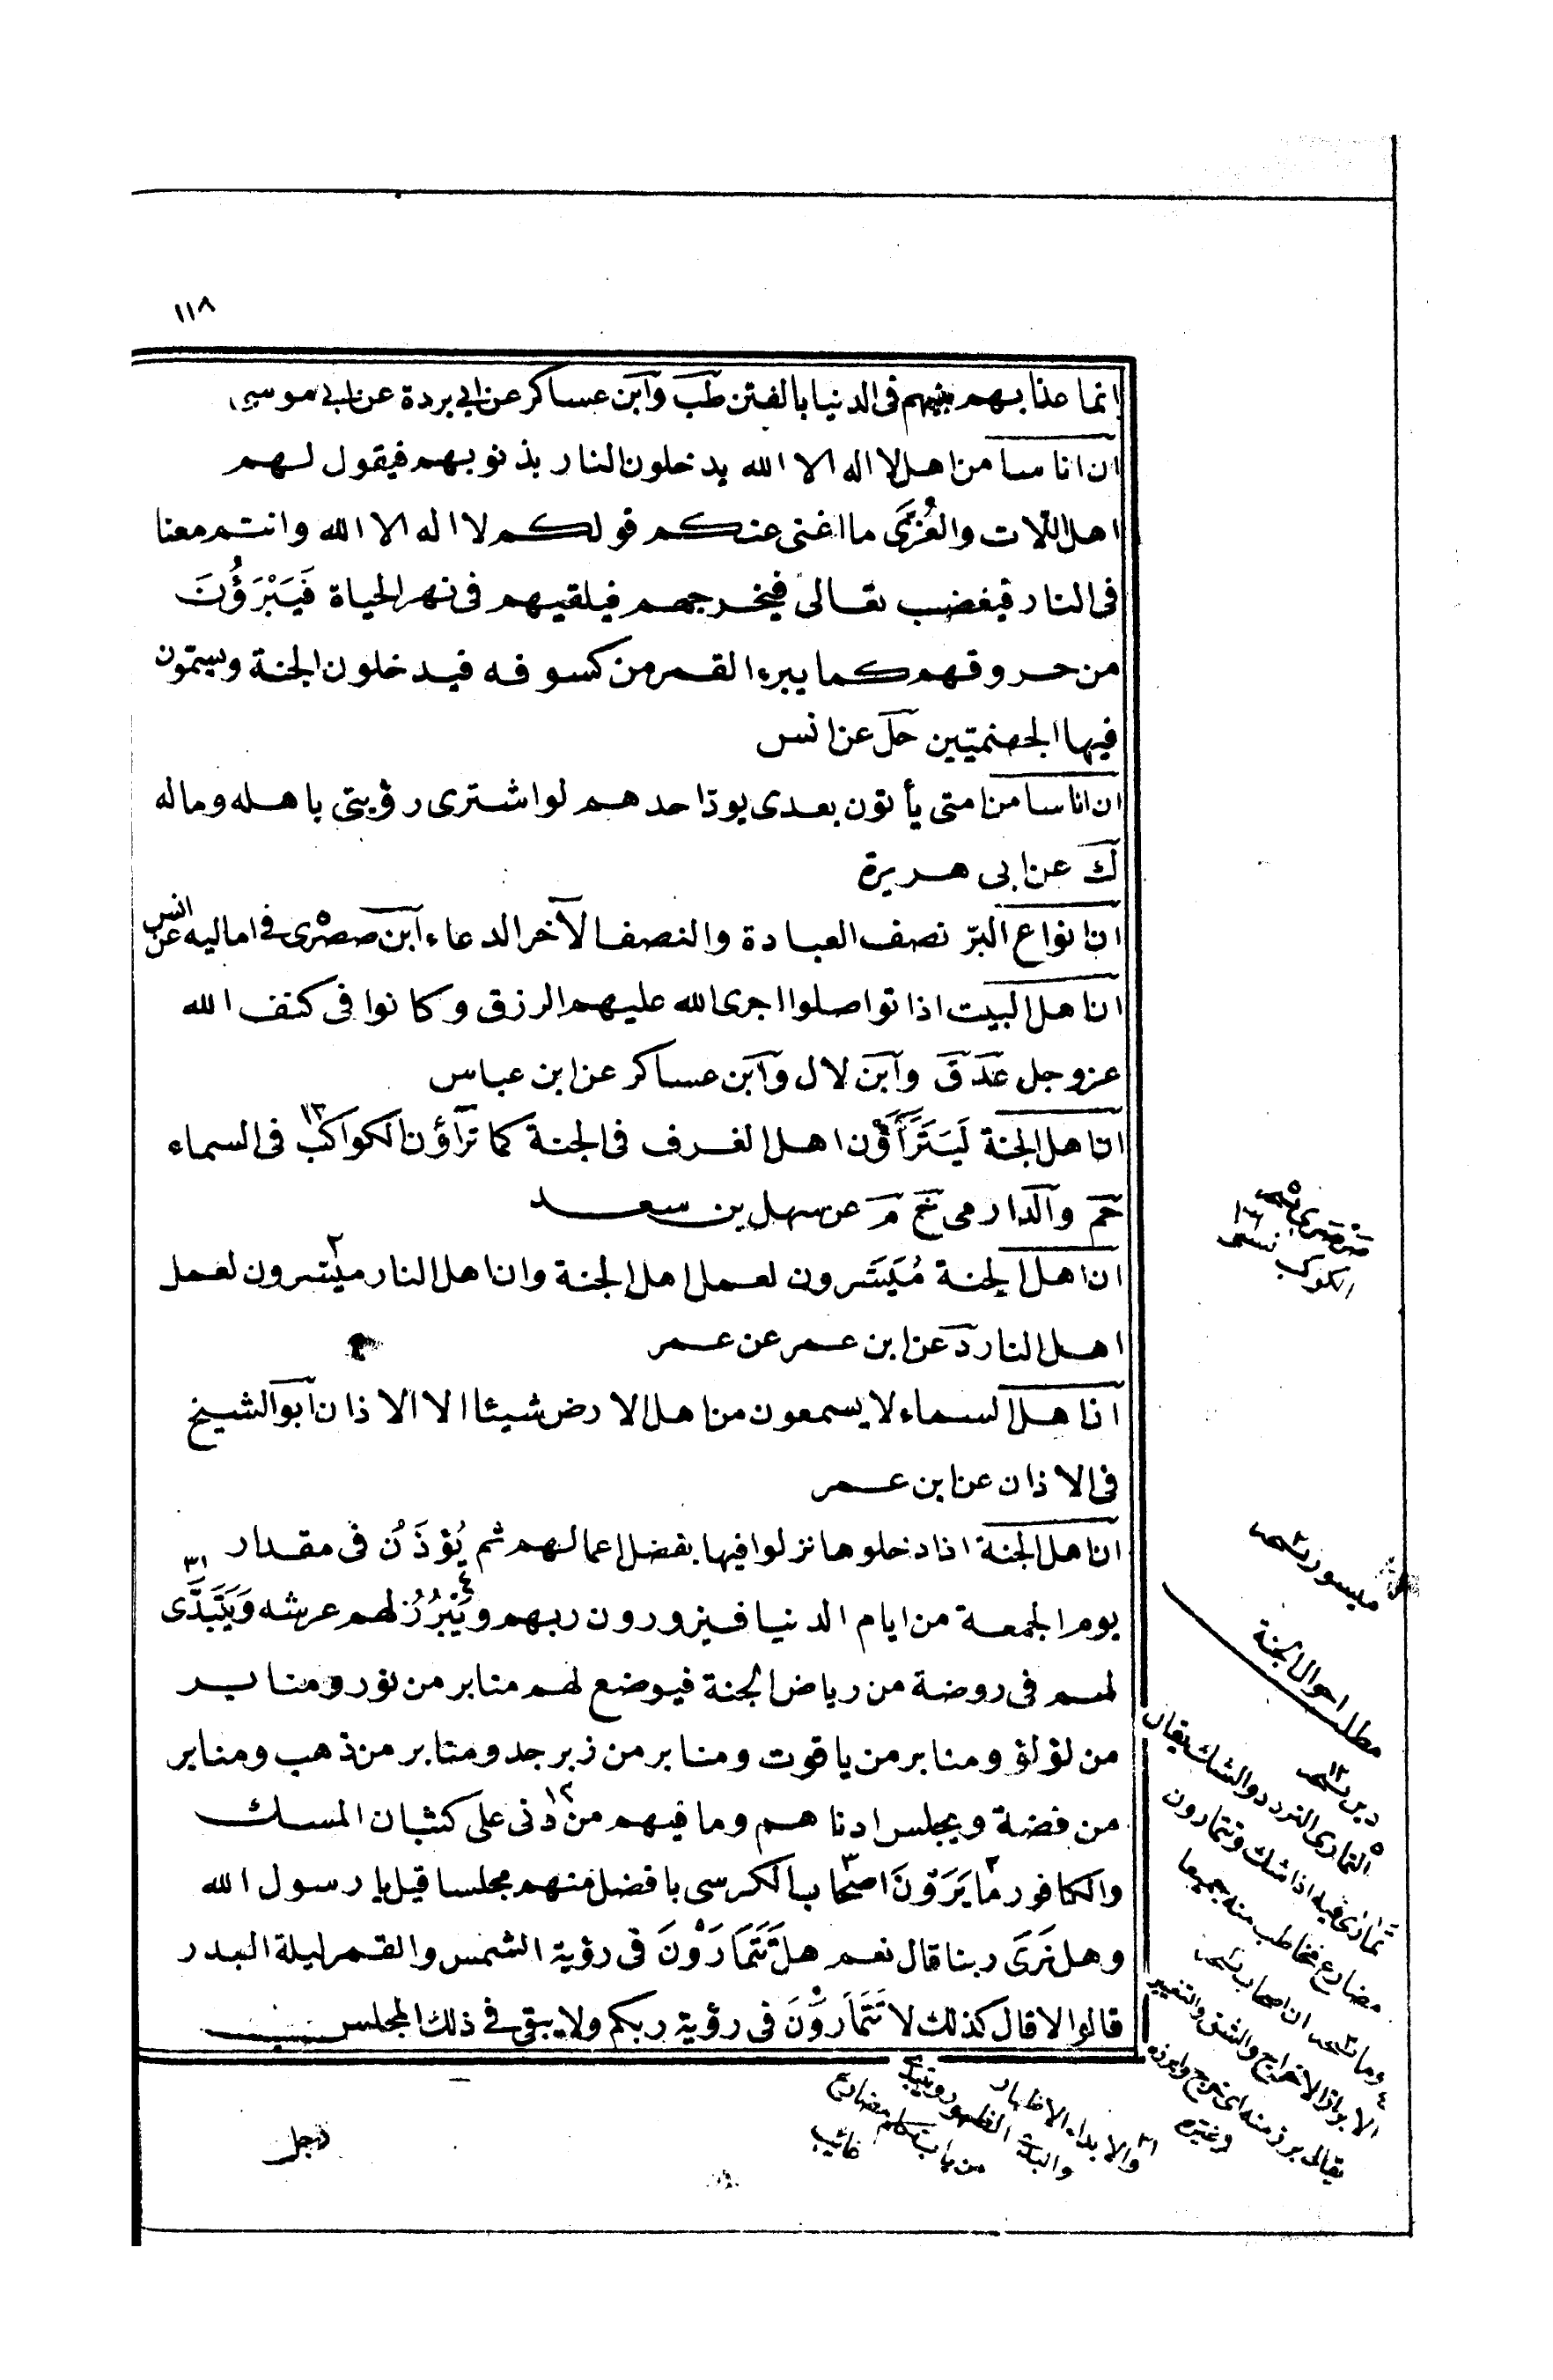 ١١٨
انما عذابهم بينهم فى الدنيا بالفتن طب وابن عساكر عن ابى بردة عن ابى موسى
ان اناسا من اهل لا اله الا الله يدخلون النار بذنوبهم فيقول لهم
اهل اللات والعُزّى ما اغنى عنكم قولكم لا اله الا الله وانتم معنا
فى النار فيغضب تعالى فيخرجهم فيلقيهم فى نهر الحياة فَيَبْرَؤُنَ
من حروقهم كما يبرء القمر من كسوفه فيدخلون الجنة ويسمّون
فيها الجهنميّين حل عن انس
ان اناسا من امتى يأتون بعدى يودّ احدهم لو اشترى رؤيتى باهله وماله
ك عن ابى هريرة
ان انواع البرّ نصف العبادة والنصف الآخر الدعاء ابن صصْرى فى اماليه عن انس
ان اهل البيت اذا تواصلوا اجرى الله عليهم الرزق وكانوا فى كنف الله
عز وجل عد ق وابن لال وابن عساكر عن ابن عباس
ان اهل الجنة لَيَتَرَاَؤْن اهل الغرف فى الجنة كما تراؤن الكواكب ١٣ فى السماء
حم والدارمى خ م عن سهل بن سعد
ان اهل الجنة مُيَسَّرون لعمل اهل الجنة وان اهل النار ميسّرون ٢ لعمل
اهل النار د عن ابن عمر عن عمر
ان اهل السماء لا يسمعون من اهل الارض شيئا الا الاذان ابو الشيخ
فى الاذان عن ابن عمر
ان اهل الجنة اذا دخلوها نزلوا فيها بفضل اعمالهم ثم يُؤذَنُ فى مقدار
يوم الجمعة من ايام الدنيا فيزورون ربهم ويُبْرُزُ ٤ لهم عرشه وَيَتَبَدَّى ٣١
لهم فى روضة من رياض الجنة فيوضع لهم منابر من نور ومنابر
من لؤلؤ ومنابر من ياقوت ومنابر من زبرجد ومنابر من ذهب ومنابر
من فضة ويجلس ادناهم وما فيهم من دنى ١٢ على كثبان المسك
والكافور ما يَرَوْنَ ٢ اصحاب ٣ الكرسى بافضل منهم مجلسا قيل يا رسول الله
وهل نَرَى ربنا قال نعم هل تَتَمَارَوْنَ فى رؤية الشمس والقمر ليلة البدر
قالوا لا قال كذلك لا تَتَمَارَوْنَ فى رؤية ربكم ولا يبقى فى ذلك المجلس
رجل
الكوكب
ميسور
مطلب احوال الجنة
التمارى التردد والشك يقال
تمارى فيه اذا شك وتتمارون
مضارع مخاطب منه جميعا
يقال برز منه اى خرج وابرزه
وغيره
٣١ والابداء الاظهار
من باب تكلم مضارع
غائب